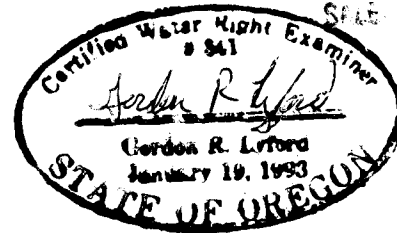 Certified Water Right Examiner
# 341
Gordon R Lyford
Gordon R. Lyford
January 19, 1993
STATE OF OREGON